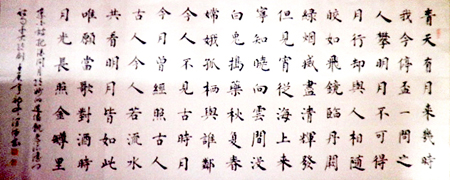 青天有月來幾時
我今停盃一問之
人攀明月不可得
月行却與人相隨
皎如飛鏡臨丹闕
綠烟滅盡清輝發
但見宵從海上來
寧知曉向雲間沒
白兔搗藥秋復春
嫦娥孤栖與誰鄰
今人不見古時月
今月曾經照古人
古人今人若流水
共看明月皆如此
唯願當歌對酒時
月光長照金罇里